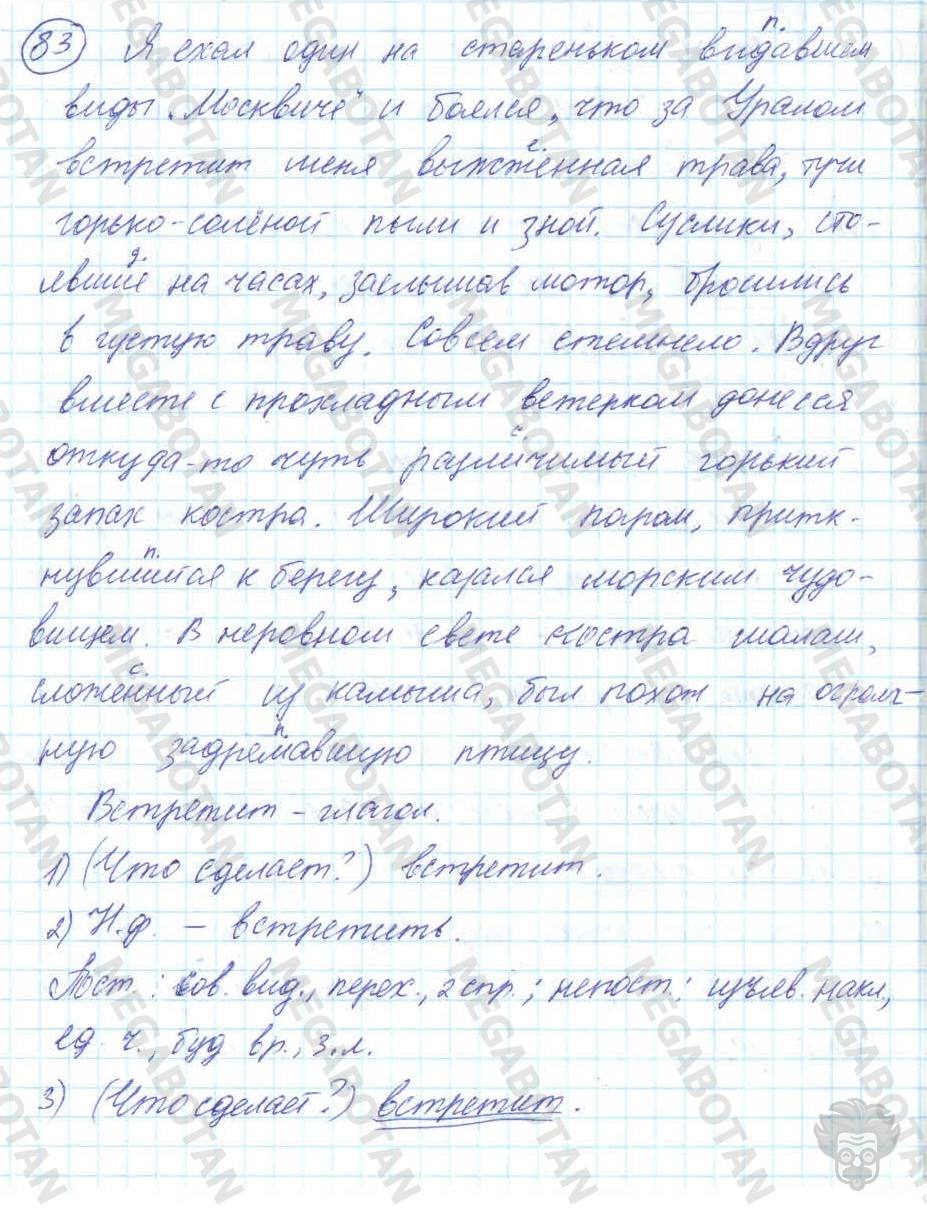 83 Я ехал один на стареньком видавшем
п.
виды „Москвиче" и боялся, что за Уралом
встретит меня выжженная трава, тучи
с.
горько-солёной пыли и зной. Суслики, сто-
явшие на часах, заслышав мотор, бросились
д.
в густую траву. Совсем стемнело. Вдруг
вместе с прохладным ветерком донёсся
откуда-то чуть различимый горький
с.
запах костра. Широкий паром, притк-
нувшийся к берегу, казался морским чудо-
п.
вищем. В неровном свете костра шалаш,
сложенный из камыша, был похож на огром-
с.
ную задремавшую птицу.
п
Встретит – глагол.
1) (Что сделает?) встретит.
2) Н.ф. – встретить.
Пост.: сов. вид., перех., 2 спр.; непост: изъяв. накл,
ед. ч., буд вр., 3 л.
3) (Что сделает?) встретит.
MEGABOTAN